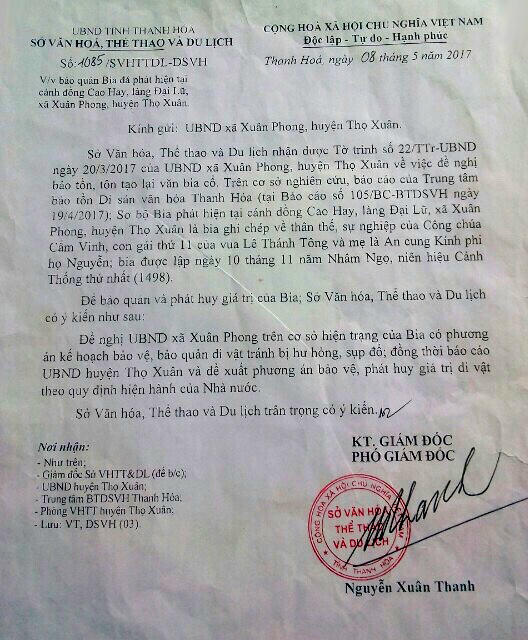 UBND TỈNH THANH HOÁ
SỞ VĂN HOÁ, THỂ THAO VÀ DU LỊCH
Số: 1085/SVHTTDL-DSVH
V/v bảo quản Bia đá phát hiện tại
cánh đồng Cao Hay, làng Đại Lữ,
xã Xuân Phong, huyện Thọ Xuân.
CỘNG HOÀ XÃ HỘI CHỦ NGHĨA VIỆT NAM
Độc lập - Tự do - Hạnh phúc
Thanh Hoá, ngày 08 tháng 5 năm 2017
Kính gửi: UBND xã Xuân Phong, huyện Thọ Xuân.
Sở Văn hóa, Thể thao và Du lịch nhận được Tờ trình số 22/TTr-UBND
ngày 20/3/2017 của UBND xã Xuân Phong, huyện Thọ Xuân về việc đề nghị
bảo tồn, tôn tạo lại văn bia cổ. Trên cơ sở nghiên cứu, báo cáo của Trung tâm
bảo tồn Di sản văn hóa Thanh Hóa (tại Báo cáo số 105/BC-BTDSVH ngày
19/4/2017); Sơ bộ Bia phát hiện tại cánh đồng Cao Hay, làng Đại Lữ, xã Xuân
Phong, huyện Thọ Xuân là bia ghi chép về thân thế, sự nghiệp của Công chúa
Cẩm Vinh, con gái thứ 11 của vua Lê Thánh Tông và mẹ là An cung Kính phi
họ Nguyễn; bia được lập ngày 10 tháng 11 năm Nhâm Ngọ, niên hiệu Cảnh
Thống thứ nhất (1498).
Để bảo quản và phát huy giá trị của Bia; Sở Văn hóa, Thể thao và Du lịch
có ý kiến như sau:
Đề nghị UBND xã Xuân Phong trên cơ sở hiện trạng của Bia có phương
án kế hoạch bảo vệ, bảo quản di vật tránh bị hư hỏng, sụp đổ; đồng thời báo cáo
UBND huyện Thọ Xuân và đề xuất phương án bảo vệ, phát huy giá trị di vật
theo quy định hiện hành của Nhà nước.
Sở Văn hóa, Thể thao và Du lịch trân trọng có ý kiến.
Nơi nhận:
- Như trên;
- Giám đốc Sở VHTT&DL (để b/c);
- UBND huyện Thọ Xuân;
- Trung tâm BTDSVH Thanh Hóa;
- Phòng VHTT huyện Thọ Xuân;
- Lưu: VT, DSVH (03).
KT. GIÁM ĐỐC
PHÓ GIÁM ĐỐC
CỘNG HOÀ XÃ HỘI CHỦ NGHĨA
SỞ VĂN HOÁ
THỂ THAO
VÀ DU LỊCH
TỈNH THANH HÓA
Nguyễn Xuân Thanh